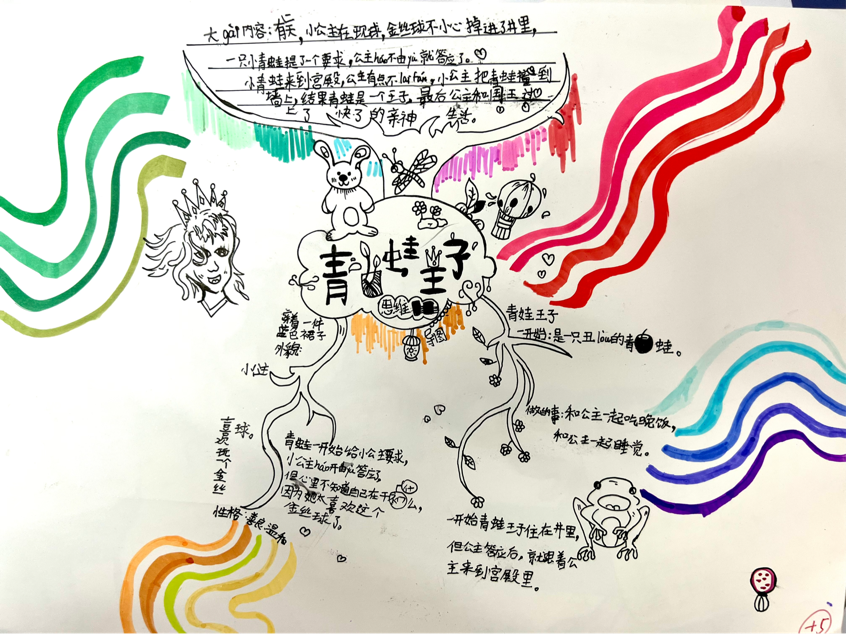 大gài内容:有天,小公主在玩球,金丝球不小心掉进了井里,
一只小青蛙提了个要求,公主háo不由yù就答应了。
小青蛙来到宫殿,公主有些不 小公主把青蛙 到
墙上,结果青蛙是一个王子。最后公主和国王过
上了 快了的亲神 生活。
青蛙王子
思维
导图
穿着一件
蓝色裙子
外貌
小公主
喜欢玩个金丝
球。
性格:善良温和
青蛙一开始给小公主要求,
小公主háo不由yù答应了
但心里不知道自己在干什么,
因为她太喜欢这个
金丝球了。
青娃王子
一开始:是一只丑lòu的青 蛙。
做的事:和公主一起吃晚饭,
和公主一起睡觉。
一开始青蛙王子住在井里,
但公主答应后,就跟着公
主来到宫殿里。
+5